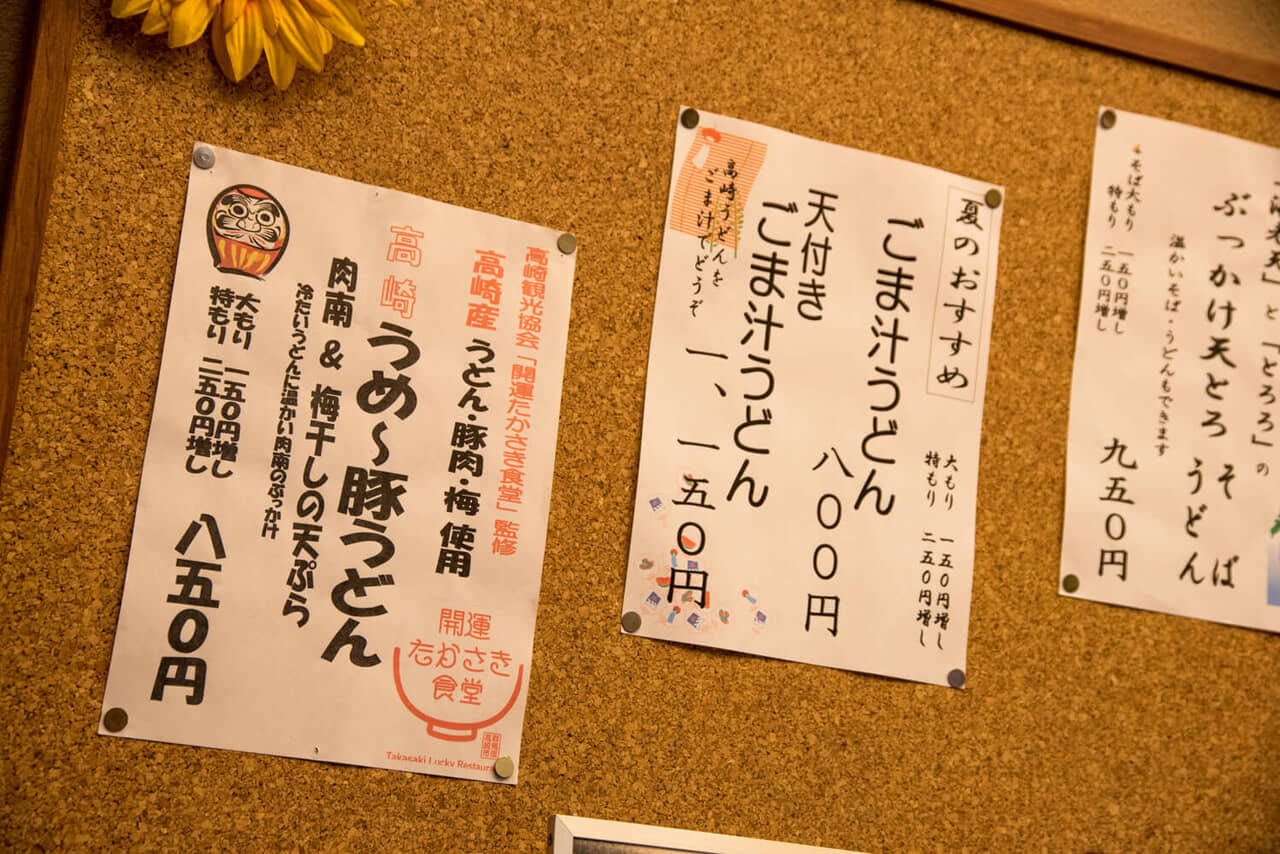 高崎観光協会「開運たかさき食堂」監修
高崎産 うどん・豚肉・梅 使用
高崎 うめ〜豚うどん
肉南 & 梅干しの天ぷら
冷たいうどんに温かい肉南のぶっかけ
大もり 一五〇円増し
特もり 二五〇円増し
八五〇円
開運
たかさき
食堂
群馬県
高崎市
Takasaki Lucky Restaur
夏のおすすめ
大もり 一五〇円増し
特もり 二五〇円増し
ごま汁うどん 八〇〇円
天付き
ごま汁うどん
一、一五〇円
高崎うどんを
ごま汁でどうぞ
」と「とろろ」の
ぶっかけ天とろ そば
うどん
九五〇円
温かいそば・うどんもできます
そば大もり 一五〇円増し
特もり 二五〇円増し